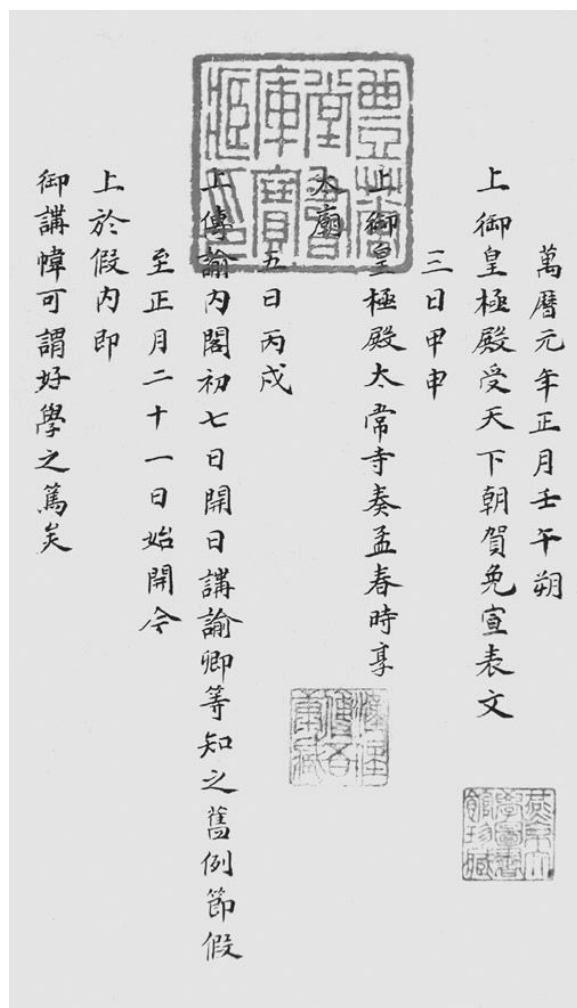 萬曆元年正月壬午朔
上御皇極殿受天下朝賀免宣表文
三日甲申
上御皇極殿太常寺奏孟春時享
太廟
五日丙戌
上傳諭内閣初七日開日講諭卿等知之舊例節假
至正月二十一日始開今
上於假内即
御講幃可謂好學之篤矣
豐華堂書庫寶藏印
燕京大學圖書館珍藏